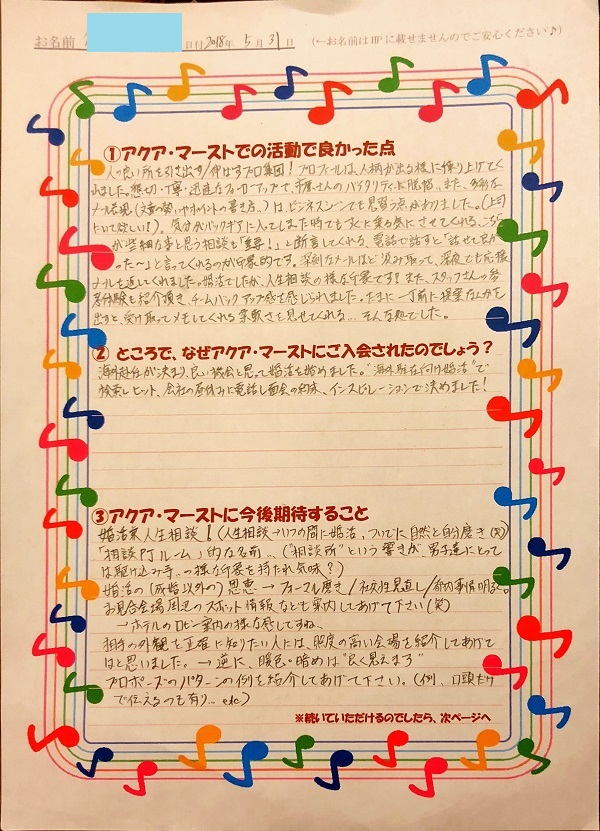 お名前 日付 2018年 5月 31日 (←お名前はHPに載せませんのでご安心ください♪)
①アクア・マーストでの活動で良かった点
人の良い所を引き出す/伸ばすプロ集団!プロフィールは人柄が出る様に作り上げてく
れました。懇切・丁寧・迅速なフォローアップで、さんのバイタリティに脱帽。また、多彩な
メール表現(文章の勢いやポイントの書き方、)はビジネスシーンでも見習う点がありました。(上司
にいて欲しい!)、気分がバックギアに入ってしまた時でもすぐに乗る気にさせてくれる、こちら
が些細な事と思う相談も「重要!」と断言してくれる、電話で話すと「話せて良か
った~」と言ってくれるのが印象的です。深刻なメールほど汲み取って、深夜でも応援
メールを返してくれました。婚活でしたが、人生相談の様な年度です!また、スタッフさんの参
考体験も紹介頂き、チームバックアップ感を感じられました。たまに一丁前に提案なんかを
出すと、受け取ってメモしてくれる柔軟さを見せてくれる…そんな処でした。
② ところで、なぜアクア・マーストにご入会されたのでしょう?
海外赴任が決まり、良い機会と思って婚活を始めました。"海外駐在付け婚活"で
検索しヒット、会社の昼休みに電話し面会の約束、インスピレーションで決めました!
③アクア・マーストに今後期待すること
婚活兼人生相談!(人生相談→いつの間に婚活、ついでに自然と自分磨き(笑)
「相談PJルーム」的な名前…("相談所"という響きが、男子達にとって
は駆け込み寺、の様な印象を持たれ気味?)
婚活の(成婚以外の)恩恵→フォーマル磨き/社交性見直し/都内事情明るく。
お見合会場周辺のスポット情報なども案内してあげて下さい(笑)
→ホテルのロビー案内の様な感じですね、
相手の外観を正確に知りたい人には、照度の高い会場を紹介してあげて
はと思いました。→逆に、暖色・暗めは"良く見えます"
プロポーズのパターンの例を紹介してあげて下さい。(例、口頭だけ
で伝えるのも有り… etc)
※続いていただけるのでしたら、次ページへ